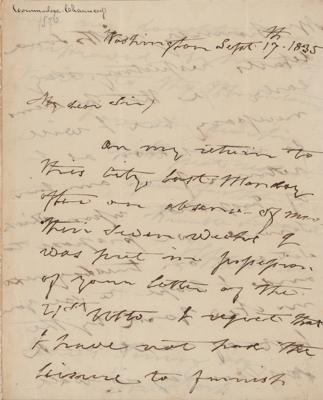 Commodore Chauncey
Washington Sept 17th 1835
My dear Sir,
On my return to
this City last Monday
after an absence of more
than seven weeks I
was put in possession
of your letter of the
21st Ulto. I regret that
I have not had the
leisure to furnish